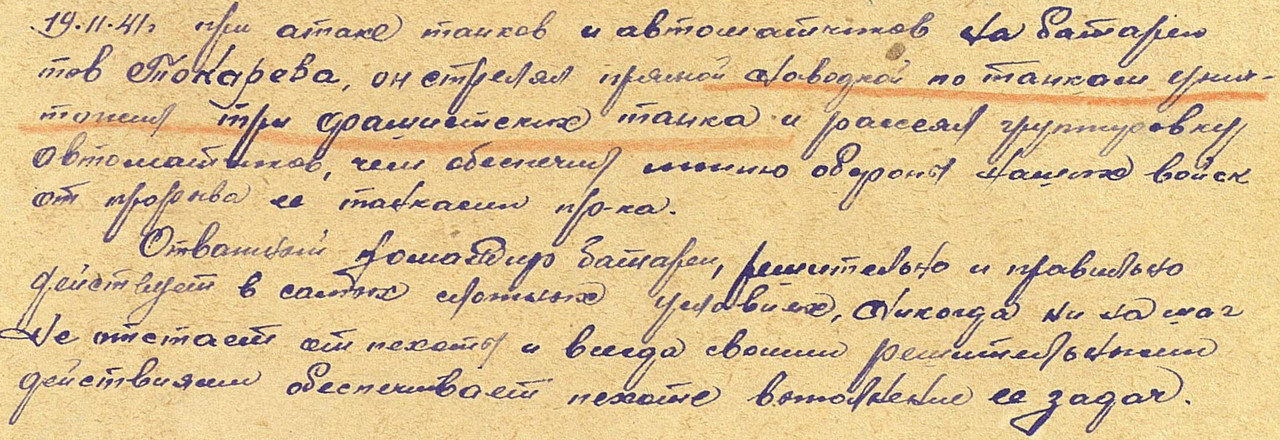 19.11.41г. при атаке танков и автоматчиков на батарею
тов Токарева, он стрелял прямой наводкой по танкам унич-
тожил три фашистских танка и рассеял группировку
автоматчиков, чем обеспечил линию обороны наших войск
от прорыва ее танками пр-ка.
Отважный командир батареи, решительно и правильно
действует в самых сложных условиях, никогда ни на шаг
не отстает от пехоты и всегда своими решительными
действиями обеспечивает пехоте выполнение ее задач.